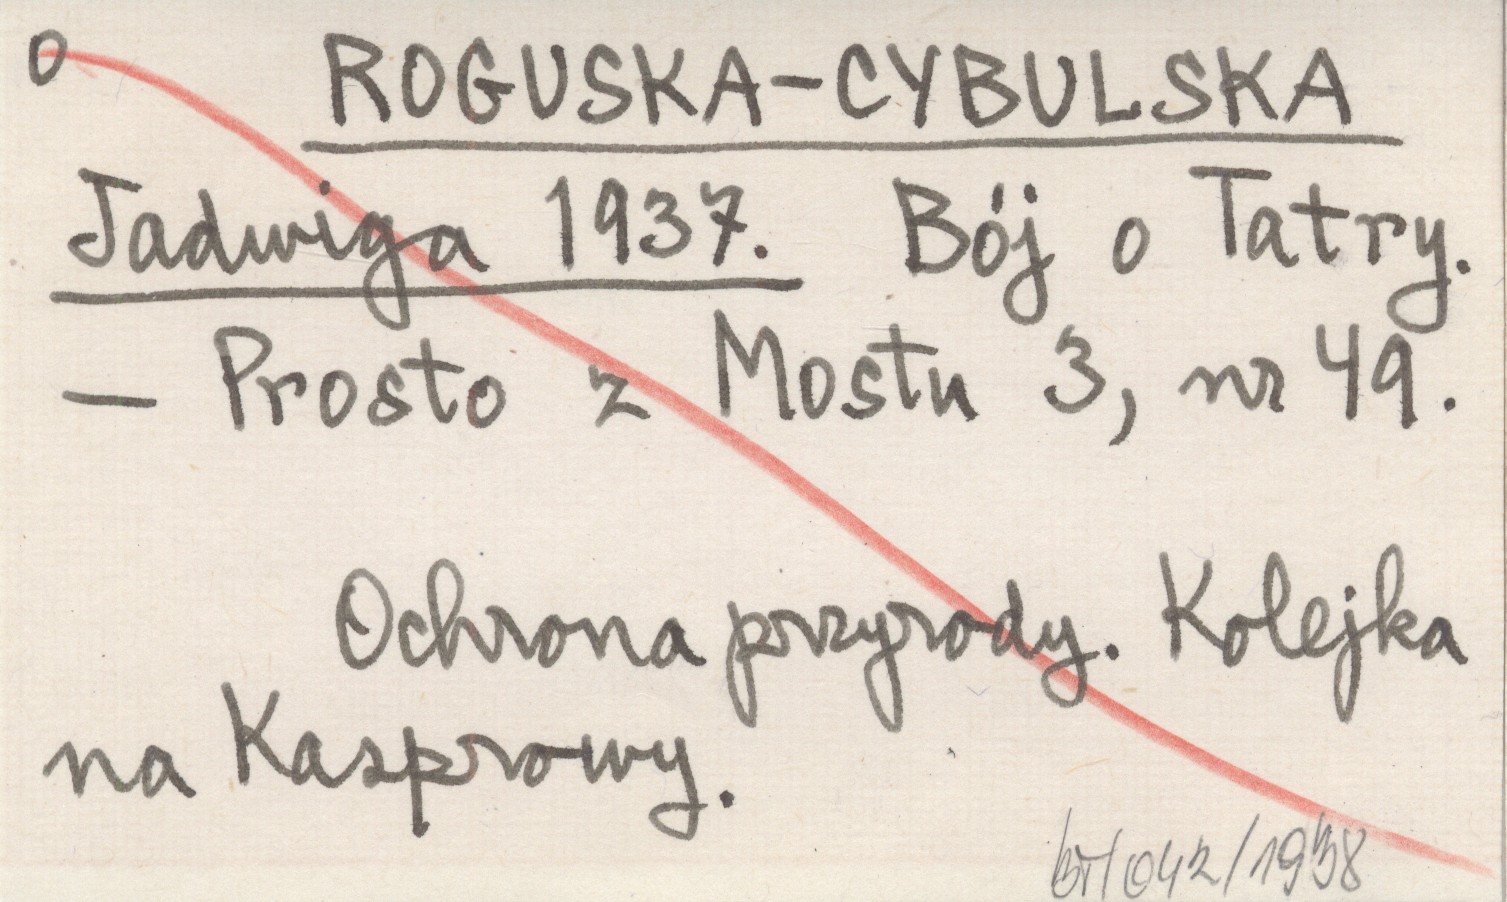 O ROGUSKA-CYBULSKA
Jadwiga 1937. Bój o Tatry.
— Prosto z Mostu 3, nr 49.
Ochrona przyrody. Kolejka
na Kasprowy.
/042/1938